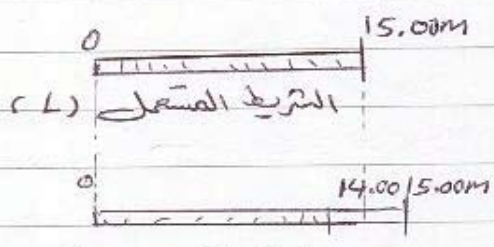 0 15.00m
الشريط المستعمل (L)
0 14.00 15.00m